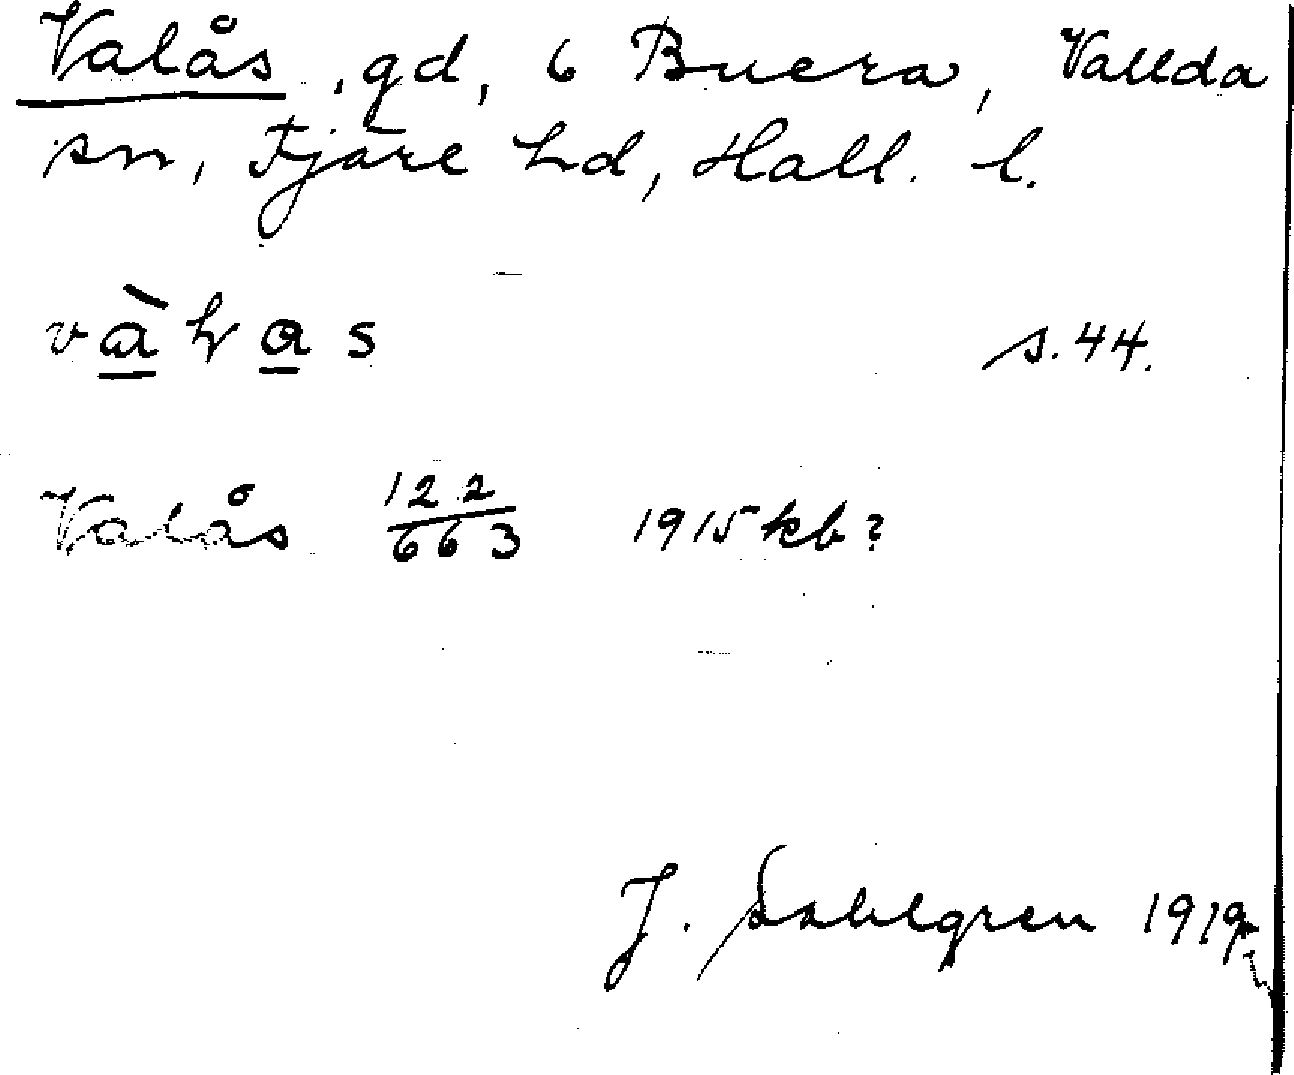 Valås, gd, 6 Buera, Vallda
sn, Fjäre hd, Hall. l.
s. 44.
Valås 122/663 1915 kb?
J. Sahlgren 1919